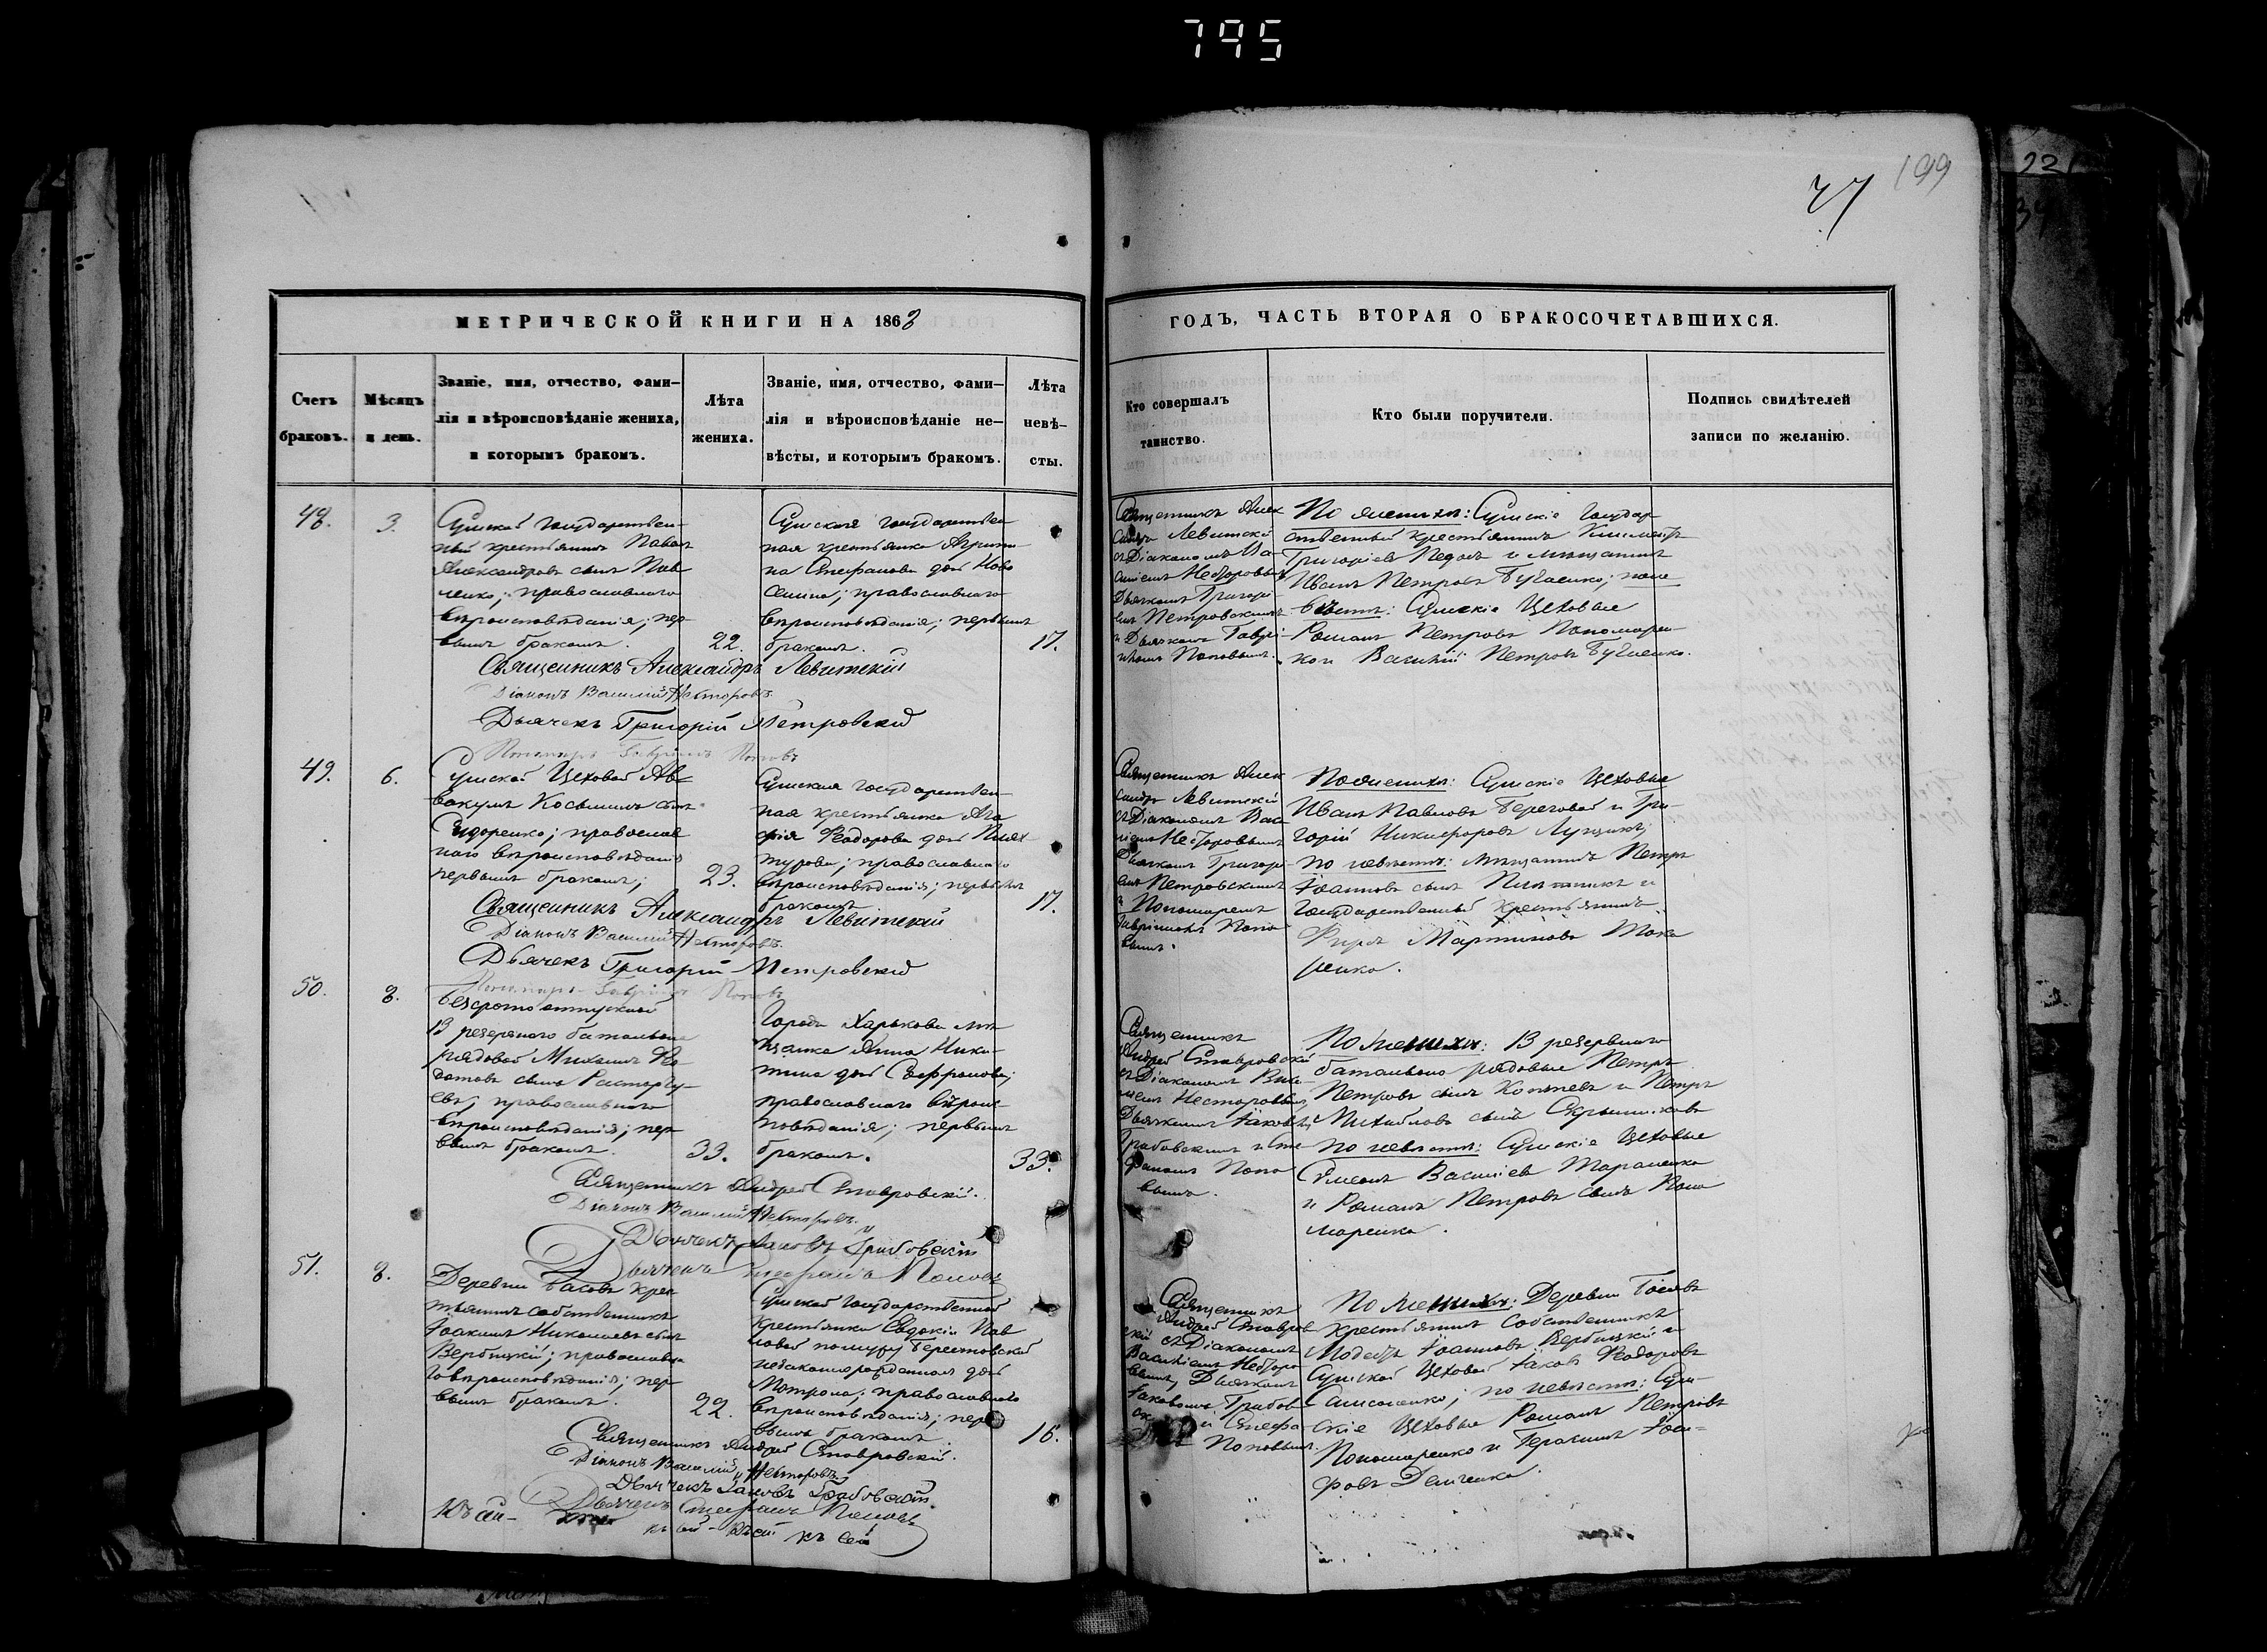 795
199
МЕТРИЧЕСКОЙ КНИГИ НА 1863
ГОДЪ, ЧАСТЬ ВТОРАЯ О БРАКОСОЧЕТАВШИХСЯ.
Счетъ
браковъ.
Мѣсяцъ
и день.
Званіе, имя, отчество, фами–
лія и вѣроисповѣданіе жениха,
и которымъ бракомъ.
Лѣта
жениха.
Званіе, имя, отчество, фами–
лія и вѣроисповѣданіе не–
вѣсты, и которымъ бракомъ.
Лѣта
невѣ–
сты.
Кто совершалъ
таинство.
Кто были поручители.
Подпись свидѣтелей
записи по желанію.
48.
3.
Сумской Государствен-
ный крестьянинъ Павелъ
Александровъ сынъ Пав
ленко; православнаго
вѣроисповѣданія; пер-
вымъ бракомъ.
22.
Сумская Государствен
ная крестьянка Агрипи
на Стефанова дочь Ново
сельна; православнаго
вѣроисповѣданія; первымъ
бракомъ.
17.
Священникъ Алек
сандръ Левитскій
съ Діакономъ Ва-
силіемъ Несторовымъ
Дьячкомъ Григорі
емъ Петровскимъ
и Дьячкомъ Гаврі-
иломъ Поповымъ.
По женихѣ: Сумскіе Государ
ственный крестьянинъ Климентъ
Григоріевъ и мѣщанинъ
Иванъ Петровъ Бугаенко; по не
вѣстѣ: Сумскіе Цеховые
Романъ Петровъ Пономарен-
ко и Василій Петровъ Бугаенко.
Священникъ Александръ Левитскій
Діаконъ Василій Несторовъ
Дьячекъ Григорій Петровскій
Пономарь Гавріилъ Поповъ
49.
6.
Сумской Цеховой Ав
вакумъ Косьминъ сынъ
Сидоренко; православ
наго вѣроисповѣданія
первымъ бракомъ;
23.
Сумская Государствен-
ная крестьянка Ага
фія Ѳеодорова дочь
православнаго
вѣроисповѣданія; первымъ
бракомъ
17.
Священникъ Алек
сандръ Левитскій
съ Діакономъ Васи
ліемъ Несторовымъ
Дьячкомъ Григорі-
емъ Петровскимъ
и Пономаремъ
Гавріиломъ Попо
вымъ.
По женихѣ: Сумскіе Цеховые
Иванъ Павловъ Береговой и Гри-
горій Никифоровъ Лущикъ;
по невѣстѣ: мѣщанинъ Петръ
Іоанновъ сынъ и
Государственный крестьянинъ
Мартиновъ Тока
ренко.
Священникъ Александръ Левитскій
Діаконъ Василій Несторовъ
Дьячекъ Григорій Петровскій
Пономарь Гавріилъ Поповъ
50.
8.
Безсрочно отпускной
13 резервного баталіона
рядовой Михаилъ Ѳе
дотовъ сынъ Расторгу-
евъ; православнаго
вѣроисповѣданія; пер
вымъ бракомъ.
33.
Города Харькова мѣ
щанка Анна Ники-
тина дочь Сафронова;
православнаго вѣроис-
повѣданія; первымъ
бракомъ.
33.
Священникъ
Андрей Ставровскій
съ Діакономъ Васи-
ліемъ Несторовымъ
Дьячкомъ Іаковомъ
Грабовскимъ и Сте
фаномъ Попо
вымъ.
По женихѣ: 13 резервного
баталіона рядовые Петръ
Петровъ сынъ Коптевъ и Петръ
Михайловъ сынъ Скрынниковъ
по невѣстѣ: Сумскіе Цеховые
Симеонъ Василіевъ Тараненко
и Романъ Петровъ сынъ Поно
маренко.
Священникъ Андрей Ставровскій.
Діаконъ Василій Несторовъ.
Дьячекъ Іаковъ Грабовскій
Дьячекъ Стефанъ Поповъ
51.
8.
Деревни Басовъ крес
тьянинъ собственникъ
Іоакимъ Николаевъ сынъ
Вербицкій; православна
го вѣроисповѣданія; пер
вымъ бракомъ.
22.
Сумской Государственной
крестьянки Евдокіи Пав
ловой Берестовской
незаконнорожденная дочь
Матрона; православнаго
вѣроисповѣданія; пер
вымъ бракомъ
16.
Священникъ
Андрей Ставров
скій съ Діакономъ
Василіемъ Несторо
вымъ, Дьячкомъ
Іаковомъ Грабов-
и Стефа
Поповымъ.
По женихѣ: Деревни Басовъ
крестьянинъ Собственникъ
Модестъ Іоанновъ Вербицкій и
Сумской Цеховой Іаковъ Ѳеодоровъ
Симоненко; по невѣстѣ: Сум-
скіе Цеховые Романъ Петровъ
Пономаренко и Герасимъ Іоси-
фовъ Демченко.
Священникъ Андрей Ставровскій.
Діаконъ Василій Несторовъ
Дьячекъ Іаковъ Грабовскій.
Дьячекъ Стефанъ Поповъ